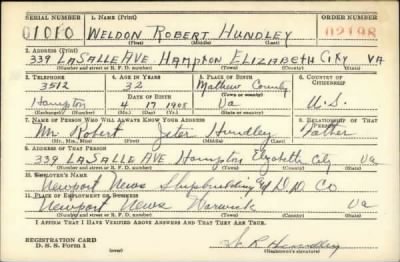 SERIAL NUMBER 1. NAME (Print) ORDER NUMBER
01010 WELDON ROBERT HUNDLEY 02198
(First) (Middle) (Last)
2. ADDRESS (Print)
339 LASALLE AVE HAMPTON ELIZABETH CITY VA
(Number and street or R. F. D. number) (Town) (County) (State)
3. TELEPHONE 4. AGE IN YEARS 5. PLACE OF BIRTH 6. COUNTRY OF CITIZENSHIP
3512 32 Mathew County
(Town or county)
Hampton 4 17 1908 Va U.S.
(Exchange) (Number) (Mo.) (Day) (Yr.) (State or country)
7. NAME OF PERSON WHO WILL ALWAYS KNOW YOUR ADDRESS 8. RELATIONSHIP OF THAT PERSON
Mr. Robert Hundley Father
(Mr., Mrs., Miss) (First) (Middle) (Last)
9. ADDRESS OF THAT PERSON
339 LASALLE AVE Hampton Elizabeth City Va
(Number and street or R. F. D. number) (Town) (County) (State)
10. EMPLOYER'S NAME
Newport News Shipbuilding & D.D. Co
11. PLACE OF EMPLOYMENT OR BUSINESS
Newport News Warwick Va
(Number and street or R. F. D. number) (Town) (County) (State)
I AFFIRM THAT I HAVE VERIFIED ABOVE ANSWERS AND THAT THEY ARE TRUE.
REGISTRATION CARD
D. S. S. Form 1 W. R. Hundley
(Registrant's signature)